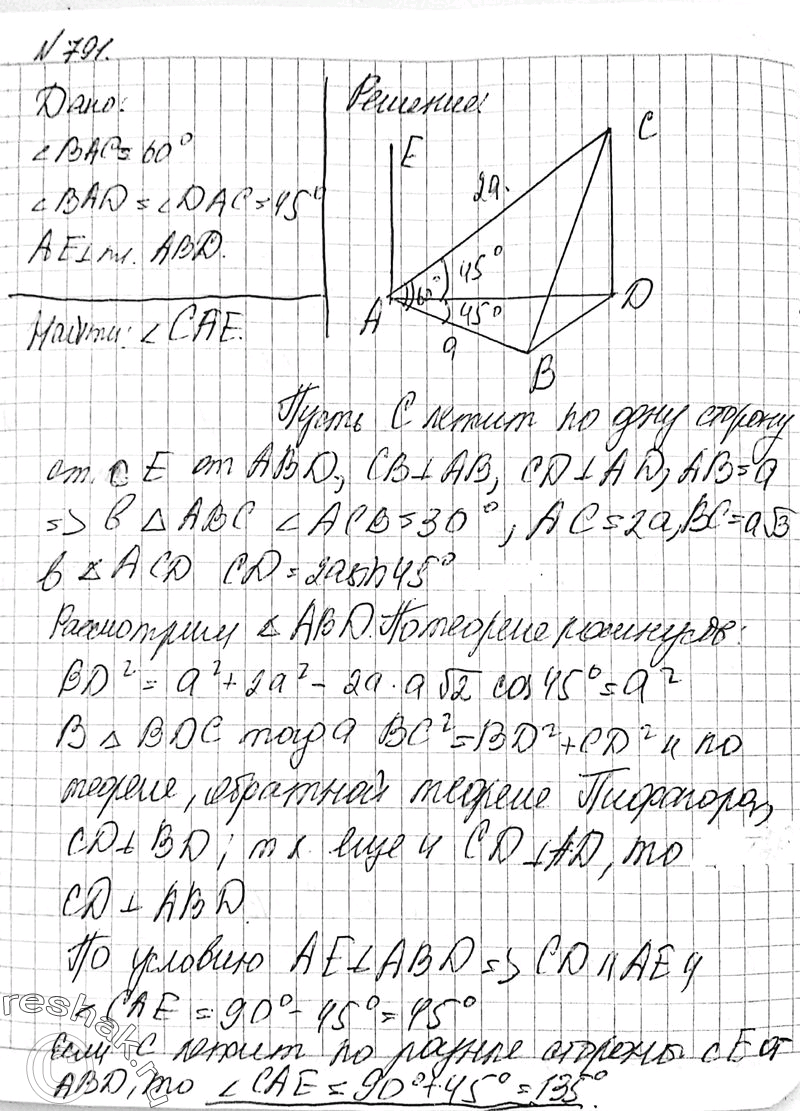 N 791.
Дано:
∠BAC = 60°
∠BAD = ∠DAC = 45°
AE ⊥ пл. ABD.
Найти: ∠CAE.
Решение:
E
C
2a.
45°
60°
A
45°
D
a
B
Пусть C лежит по одну сторону
от. с E от ABD, CB ⊥ AB, CD ⊥ AD, AB = a
=> в △ABC ∠ACB = 30°, AC = 2a, BC = a√3
в △ACD CD = 2a sin 45°
Рассмотрим △ABD. По теореме косинусов:
BD² = a² + 2a² - 2a · a√2 cos 45° = a²
В △BDC тогда BC² = BD² + CD² и по
теореме, обратной теореме Пифагора,
CD ⊥ BD; т к еще и CD ⊥ AD, то
CD ⊥ ABD.
По условию AE ⊥ ABD => CD || AE и
∠CAE = 90° - 45° = 45°
Если C лежит по разные стороны с E от
ABD, то ∠CAE = 90° + 45° = 135°.
reshak.ru